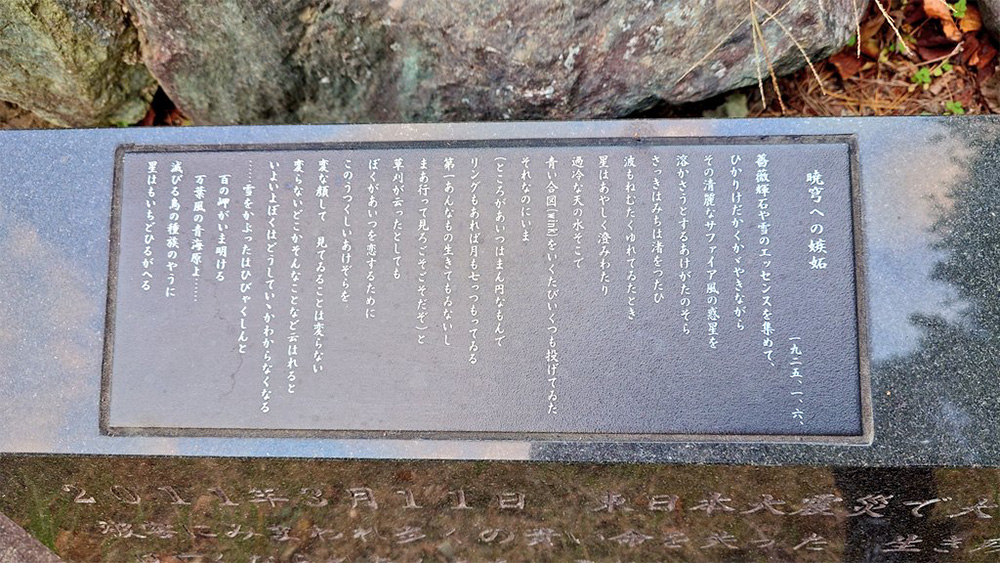 暁穹への嫉妬
一九二五、一、六、
薔薇輝石や雪のエッセンスを集めて、
ひかりけだかくかゞやきながら
その清麗なサファイア風の惑星を
溶かさうとするあけがたのそら
さっきはみちは渚をつたひ
波もねむたくゆれてゐたとき
星はあやしく澄みわたり
過冷な天の水そこで
青い合図(wink)をいくたびいくつも投げてゐた
それなのにいま
(ところがあいつはまん円なもんで
リングもあれば月も七っつもってゐる
第一あんなもの生きてもゐないし
まあ行って見ろごそごそだぞ)と
草刈が云ったとしても
ぼくがあいつを恋するために
このうつくしいあけぞらを
変な顔して 見てゐることは変らない
変らないどこかそんなことなど云はれると
いよいよぼくはどうしていゝかわからなくなる
……雪をかぶったはひびゃくしんと
百の岬がいま明ける
万葉風の青海原よ……
滅びる鳥の種族のやうに
星はもいちどひるがへる
2011年3月11日 東日本大震災で